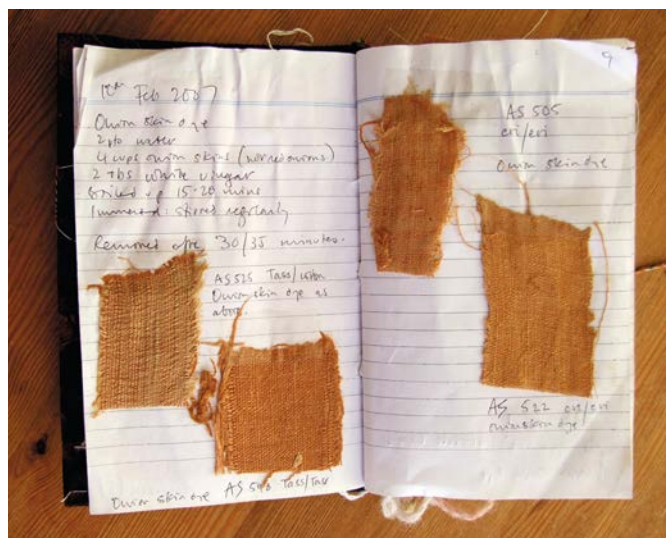 Feb 2007
Onion skin dye
2 pts water
4 cups onion skins
2 tbs white vinegar
Boiled up 15-20 mins
Immersed: stirred regularly
Removed after 30/35 minutes.
AS 525 Tass/
Onion skin dye as
above.
Onion skin dye AS Tass/Tass
9
AS 505
eri/eri
Onion skin dye
AS 522 eri/eri
onion skin dye